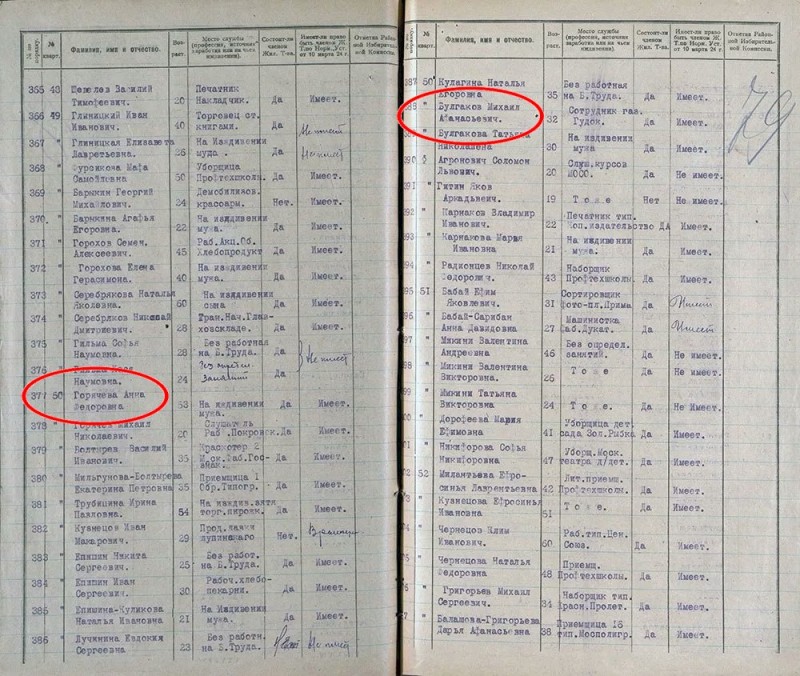 № по порядку.
№ кварт.
Фамилия, имя и отчество.
Воз-раст.
Место службы (профессия, источник заработка или на чьем иждивении).
Состоит-ли членом Жил. Т-ва.
Имеет-ли право быть членом Ж. Т. по Норм. Уст. от 10 марта 24 г.
Отметка Район-ной Избиратель-ной Комиссии.
365 48 Василий Печатник
Тимофеевич. 20 Накладчик. Да Имеет.
366 49 Глиницкий Иван Торговец ст.
Иванович. 40 книгами. Да
367 " Глиницкая Елизавета На Иждивении
Лаврентьевна 26 мужа. Да
368 " Уборщица
Самойловна 50 Профтехшколы. Да Имеет.
369 " Баркин Георгий Демобилизов.
Михайлович. 24 красоарм. Нет. Имеет.
370. " Баркина Агафья На иждивении
Егоровна. 22 мужа. Да Имеет.
371 " Горохов Семен. Раб.Акц.Об.
Алексеевич. 45 Хлебопродукт Да Имеет.
372 " Горохова Елена На иждивении
Герасимона. 40 мужа. Да Имеет.
373 " Серебрякова Наталья На иждивении
Яковлевна. 60 сына Да Имеет.
374 " Серебряков Николай Тран.Нач.Глав-
Дмитриевич. 28 ховскладе. Да Имеет.
375 " Гильма Софья Без работная
Наумовна. 28 на Б.Труда. Да Не имеет
376 "
Наумовна. 24 Да
377 50 Горячева Анна
Федоровна 53 На иждивении Да Имеет.
мужа.
378 " Михаил Слушатель
Николаевич. 20 Раб. Покровск. Да Имеет.
379 " Болтырев Василий
Иванович. 35 Да Имеет.
380 " Мильгунова-Болтырева Приемщица 1
Екатерина Петровна 35 Обр.Типогр. Да Имеет.
381 " Трубицина Ирина На иждив.зятя
Павловна. 54 Да Имеет.
382 " Кузнецов Иван Прод.лавки
Макарович. 29 Нет.
383 " Епишин Никита Без работ.
Сергеевич. 25 на Б.Труда. Да Имеет.
384 " Епишин Иван Рабоч.хлебо-
Сергеевич. 30 пекарни. Да Имеет.
385 " Епишина-Куликова На Иждивении
Наталья Ивановна 21 мужа. Да Имеет.
386 " Лучинина Евдокия Без работн.
Сергеевна 23 на Б.Труда. Не имеет
№ по порядку.
№ кварт.
Фамилия, имя и отчество.
Воз-раст.
Место службы (профессия, источник заработка или на чьем иждивении).
Состоит-ли членом Жил. Т-ва.
Имеет-ли право быть членом Ж. Т. по Норм. Уст. от 10 марта 24 г.
Отметка Район-ной Избиратель-ной Комиссии.
79
387 50 Кулагина Наталья Без работная
Егоровна 35 на Б.Труда. Да Имеет.
388 " Булгаков Михаил Сотрудник газ.
Афанасьевич. 32 Гудок. Да Имеет.
" Булгакова Татьяна На иждивении
Николаевна 30 мужа Да Имеет.
390 Агронович Соломон Слуш.курсов
Львович. 20 МОСО. Да Не имеет.
391 " Гитин Яков
Аркадьевич. 19 Т о ж е Нет Не имеет.
392 " Карнаков Владимир Печатник тип.
Иванович. 22 Коп.издательство ДА Имеет.
393 " Карнакова Мария На иждивении
Ивановна 21 мужа. Да Имеет.
394 " Радионцев Николай Наборщик
Федорович. 43 Профтехшколы. Да Имеет.
395 51 Бабай Ефим Сортировщик
Яковлевич. 31 фото-пл.Прима Да Имеет
96 " Бабай-Сарибан Машинистка
Анна Давидовна 27 Даб.Дукат. Да Имеет
97 " Микини Валентина Без определ.
Андреевна 46 занятий. Да Не имеет.
98 " Микини Валентина Т о ж е Да Не имеет.
Викторовна. 26
99 " Микини Татьяна
Викторовна 24 Т о ж е. Да Не имеет.
00 " Дорофеева Мария Уборщица дет.
Ефимовна 41 сада Зол.Рыбка Да Имеет.
01 " Никифорова Софья Уборщ.Моск.
Никифоровна 47 театра д/дет. Да Имеет.
02 52 Милантьева Ефро- Лит.приемщ.
синья Лаврентьевна 42 Профтехшколы. Да Имеет.
3 " Кузнецова Ефросинья Т о ж е. Да Имеет.
Ивановна 51
04 " Чернецов Клим Раб.тип.Цен.
Иванович. 50 Союз. Да Имеет.
05 " Чернецова Наталья Приемщ.
Федоровна 48 Профтехшколы. Да Имеет.
" Григорьев Михаил Наборщик тип.
Сергеевич. 34 Красн.Пролет. Да Имеет.
7 " Балашова-Григорьева Приемщица 16
Дарья Афанасьевна 38 тип.Мосполигр. Да Имеет.